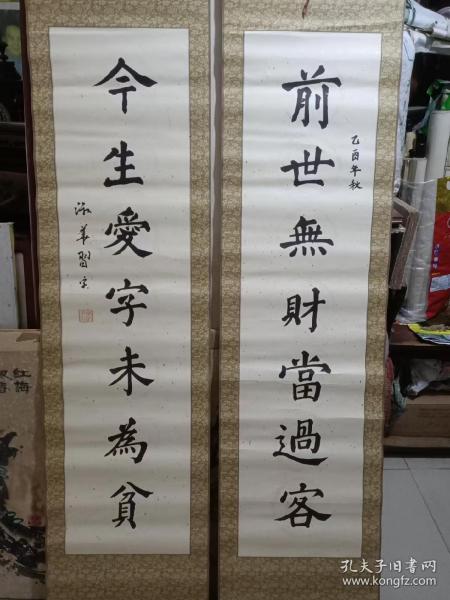 前世無財當過客
乙酉年秋
今生愛字未為貧
孔夫子旧书网
www.kongfz.com